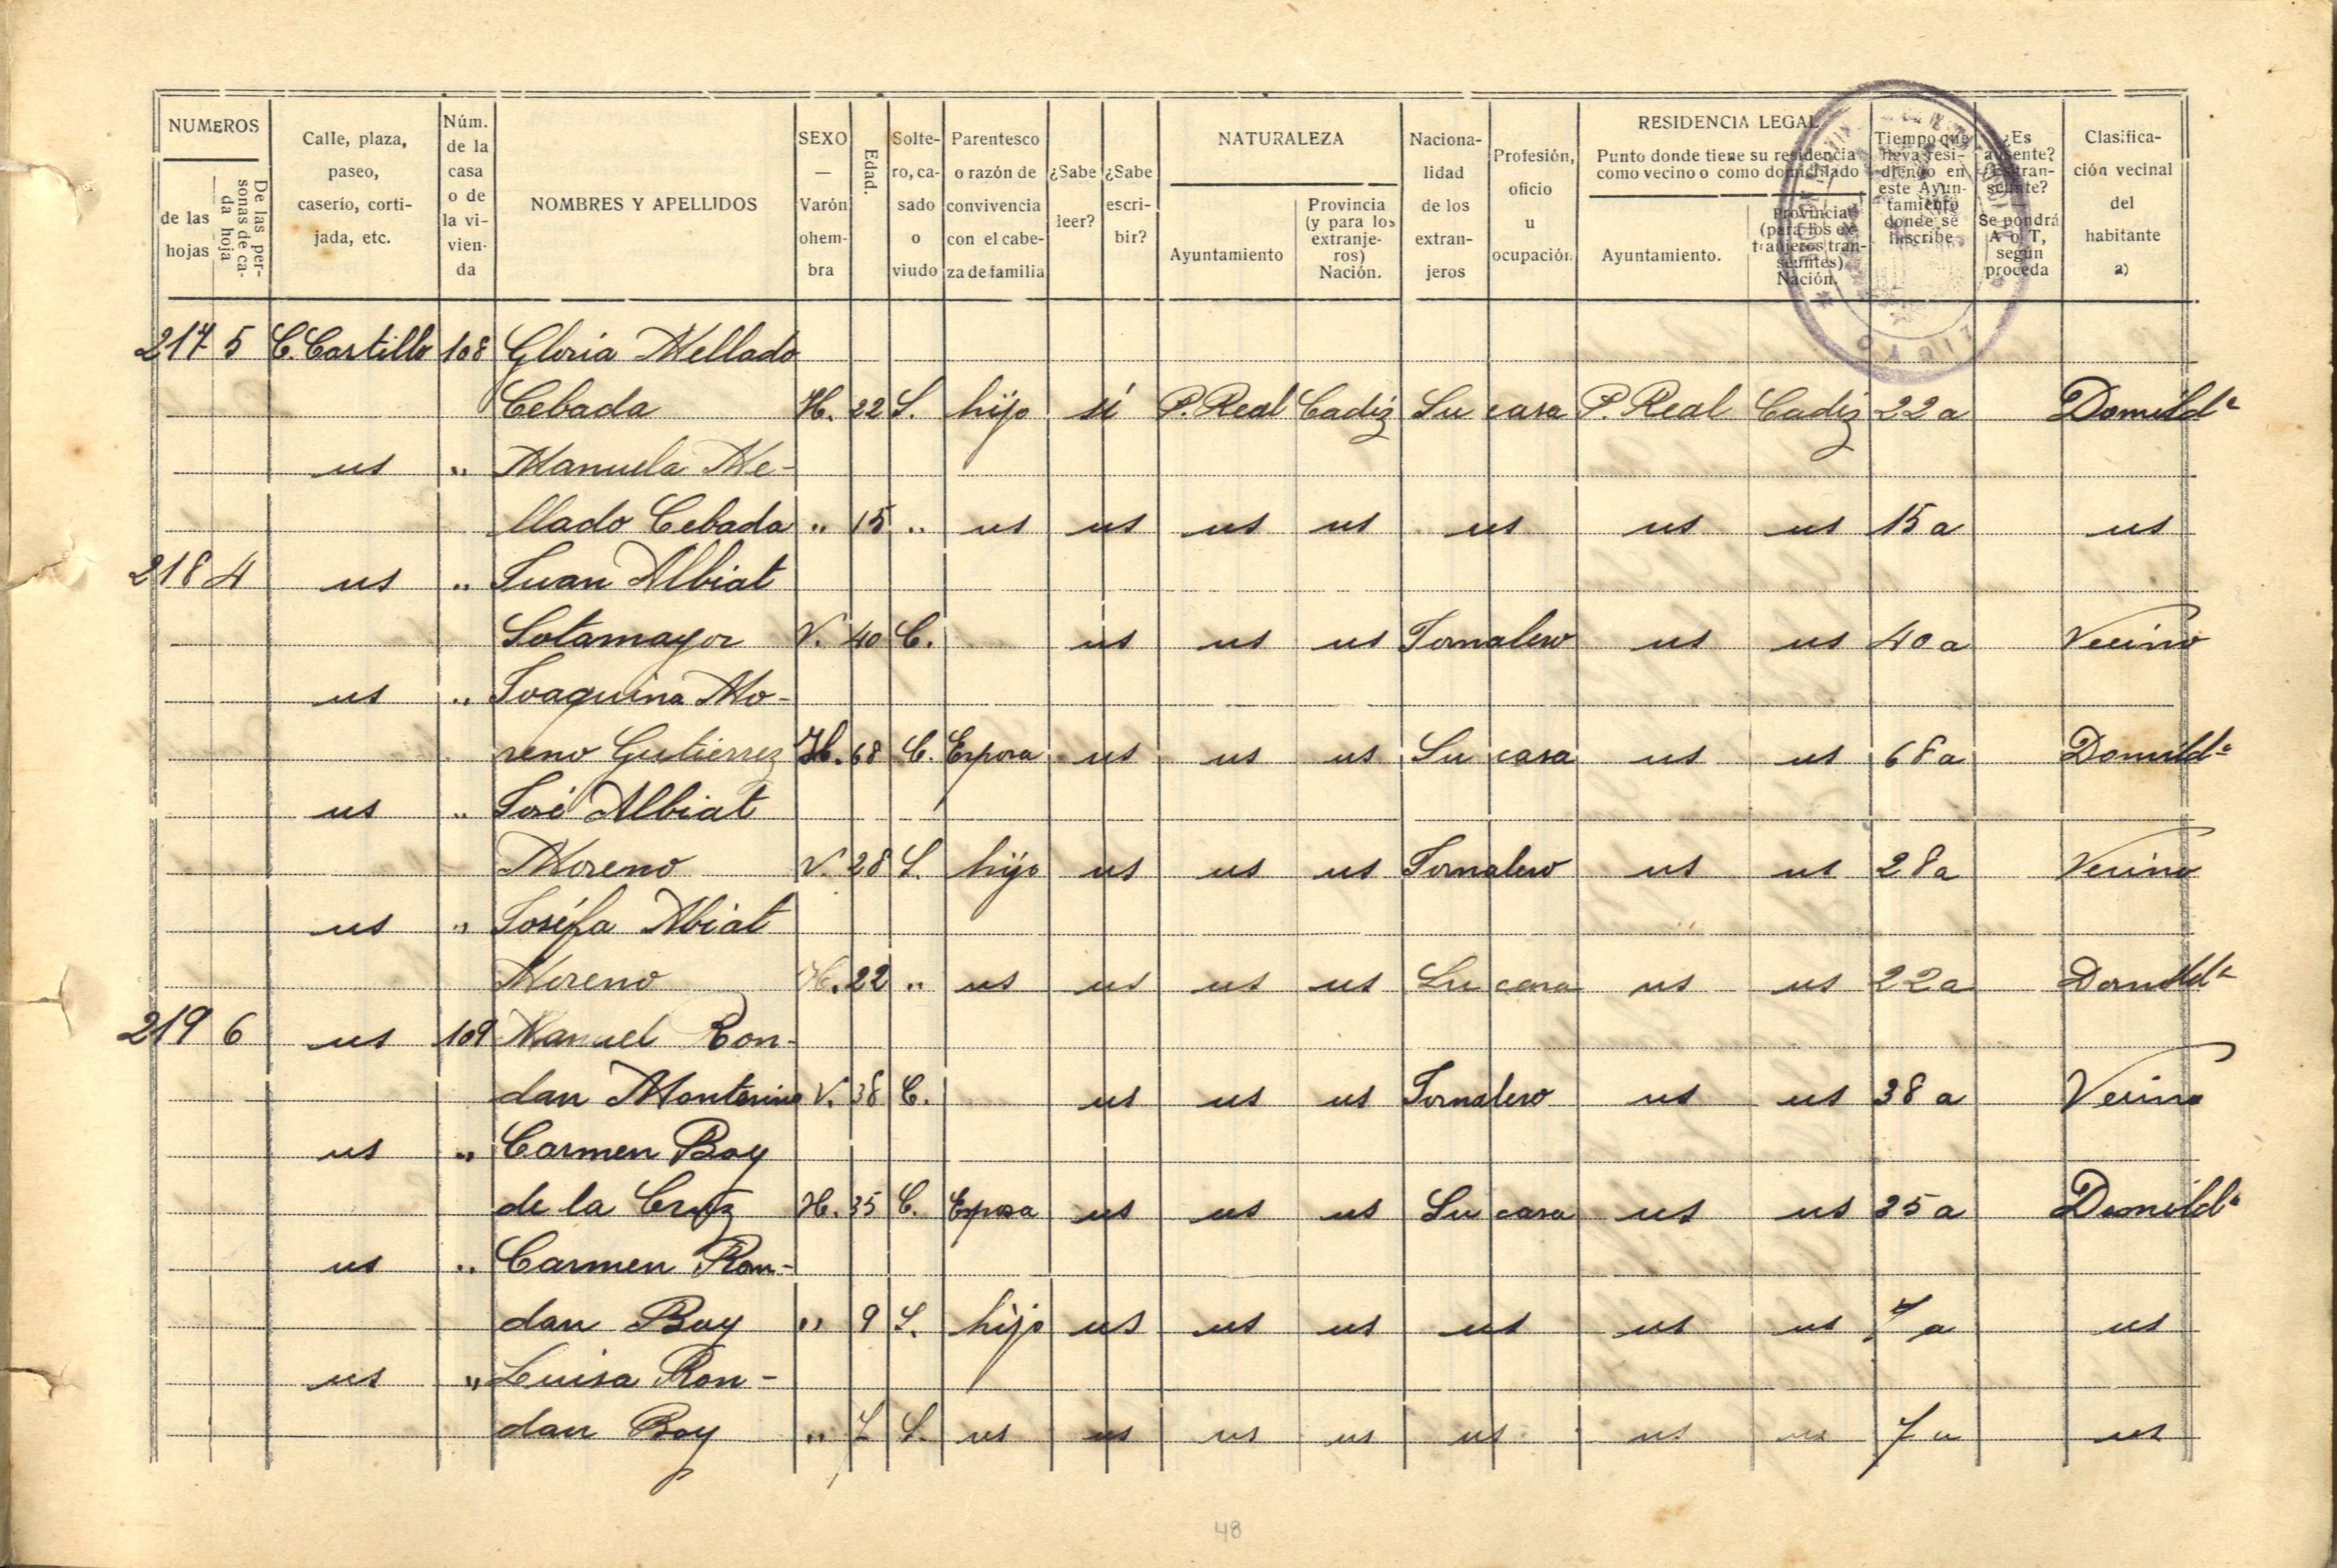 NUMEROS
de las hojas
De las personas de cada hoja
Calle, plaza, paseo, caserío, cortijada, etc.
Núm. de la casa o de la vivienda
NOMBRES Y APELLIDOS
SEXO — Varón ohembra
Edad.
Soltero, casado o viudo
Parentesco o razón de convivencia con el cabeza de familia
¿Sabe leer?
¿Sabe escribir?
NATURALEZA
Ayuntamiento
Provincia (y para los extranjeros) Nación.
Nacionalidad de los extranjeros
Profesión, oficio u ocupación
RESIDENCIA LEGAL
Punto donde tiene su residencia como vecino o como domiciliado
Ayuntamiento.
Provincia (para los extranjeros transeuntes) Nación.
Tiempo que lleva residiendo en este Ayuntamiento donde se inscribe
¿Es ausente? ¿Es transeunte? Se pondrá A o T, según proceda
Clasificación vecinal del habitante a)
217 5 C. Castillo 108 Gloria Mellado
Cebada H. 22 S. hijo sí P. Real Cadiz Su casa P. Real Cadiz 22 a Domild.ª
us " Manuela Me-
llado Cebada " 15 " us us us us us us us 15 a us
218 4 us " Juan Albiat
Sotamayor V. 40 C. us us us Jornalero us us 40 a Vecino
us " Joaquina Mo-
reno Gutierrez H. 68 C. Esposa us us us Su casa us us 68 a Domild.ª
us " José Albiat
Moreno V. 28 S. hijo us us us Jornalero us us 28 a Vecino
us " Joséfa Abiat
Moreno H. 22 " us us us us Su casa us us 22 a Domild.ª
219 6 us 109 Manuel Ron-
dan V. 38 C. us us us Jornalero us us 38 a Vecino
us " Carmen Boy
de la Cruz H. 35 C. Esposa us us us Su casa us us 35 a Domild.ª
us " Carmen Ron-
dan Boy " 9 S. hijo us us us us us us 7 a us
us " Luisa Ron-
dan Boy " 7 S. us us us us us us us 7 a us
48